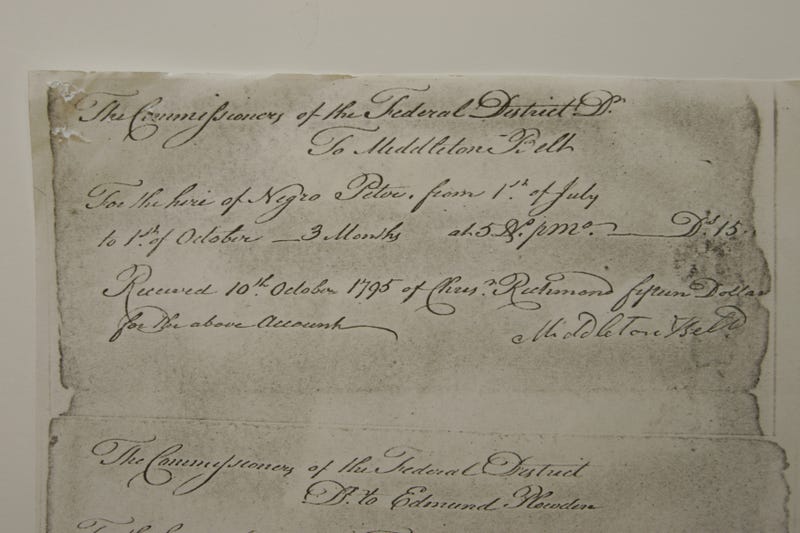 The Commissioners of the Federal District Dr.
To Middleton Belt
For the hire of Negro Peter, from 1st. of July
to 1st. of October — 3 Months at 5 Ds. p Mo. — Ds. 15.
Received 10th. October 1795 of Chrisr. Richmond fifteen Dollars
for the above Account
Middleton Belt
The Commissioners of the Federal District
Dr. to Edmund Plowden